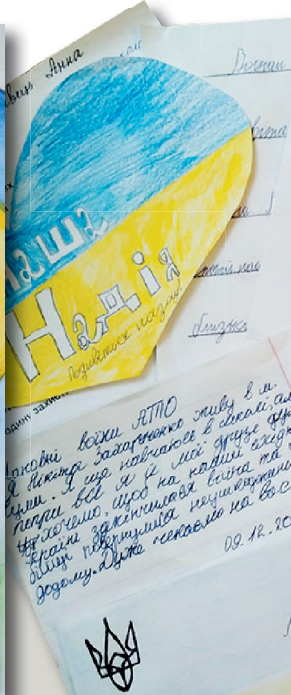 Анна
Вогни
наша
Надія
Подивіться назад!
близьк
Шановні воїни АТО
Я Вікторія Захарченко живу в м.
Суми. Я ще навчаюсь в школі, але
попри все я й мої друзі дуже
хочемо, щоб на нашій східній
Україні закінчилася війна та
бійці повернулися неушкодженими
додому. Дуже чекаємо на вас
09.12.20